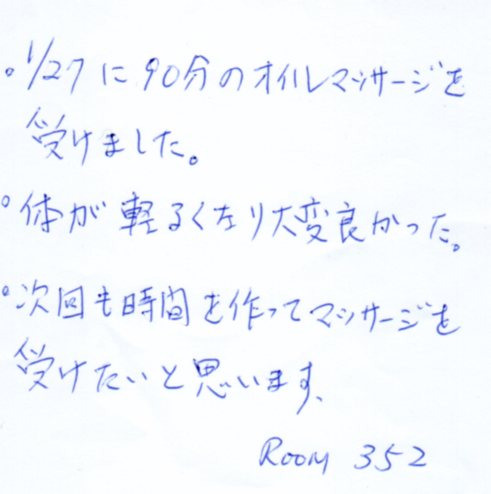 。1/27に90分のオイルマッサージを
受けました。
。体が軽るくなり大変良かった。
。次回も時間を作ってマッサージを
受けたいと思います、
ROOM 352